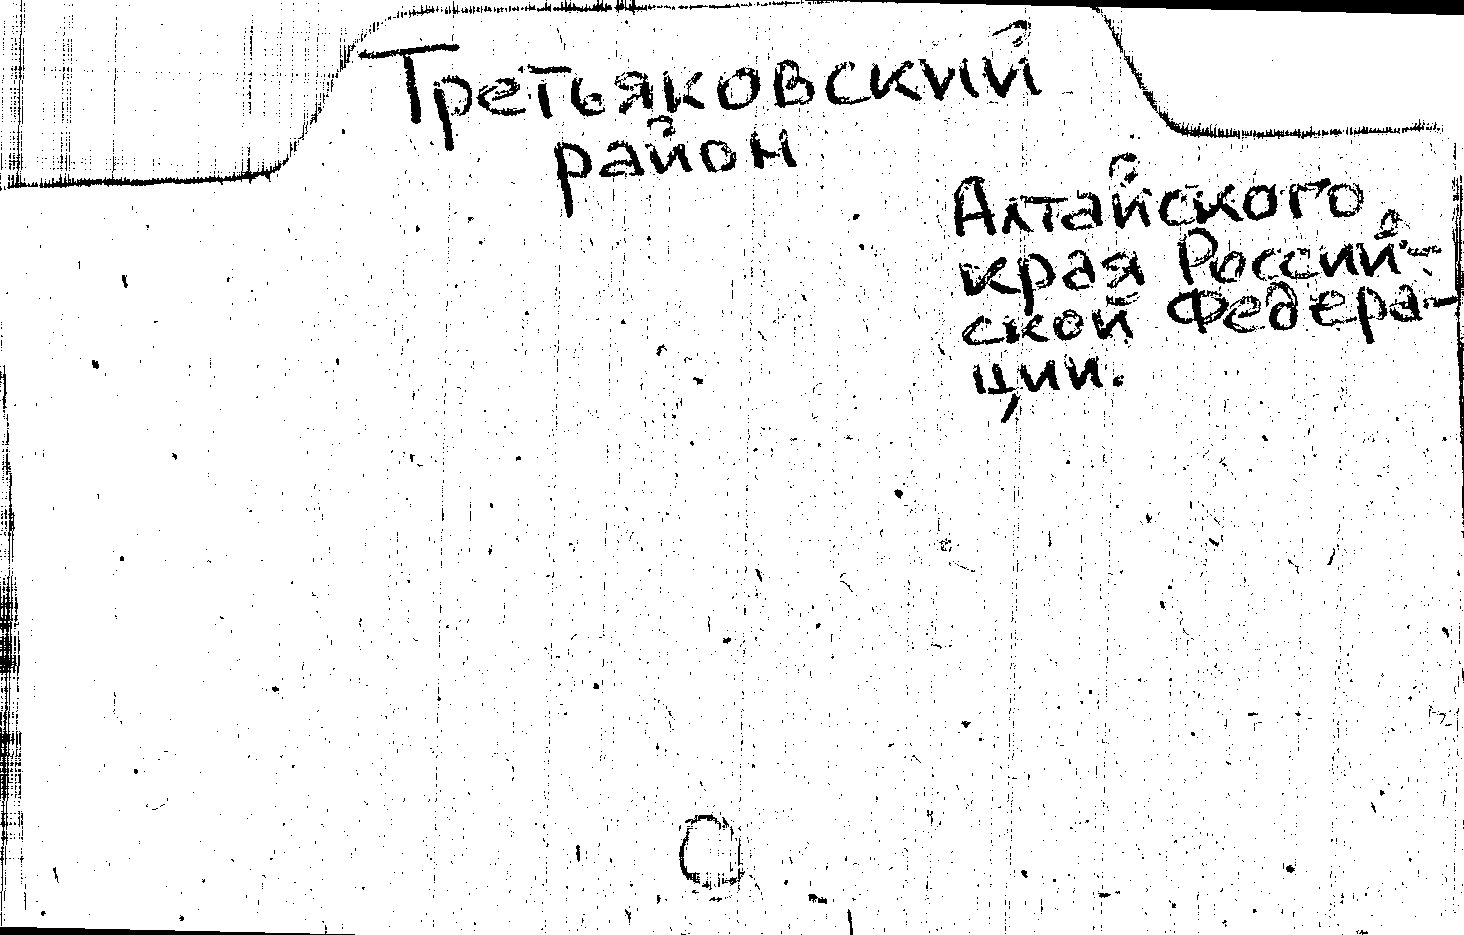 Третьяковский
район
Алтайского
края Россий-
ской Федера-
ции.